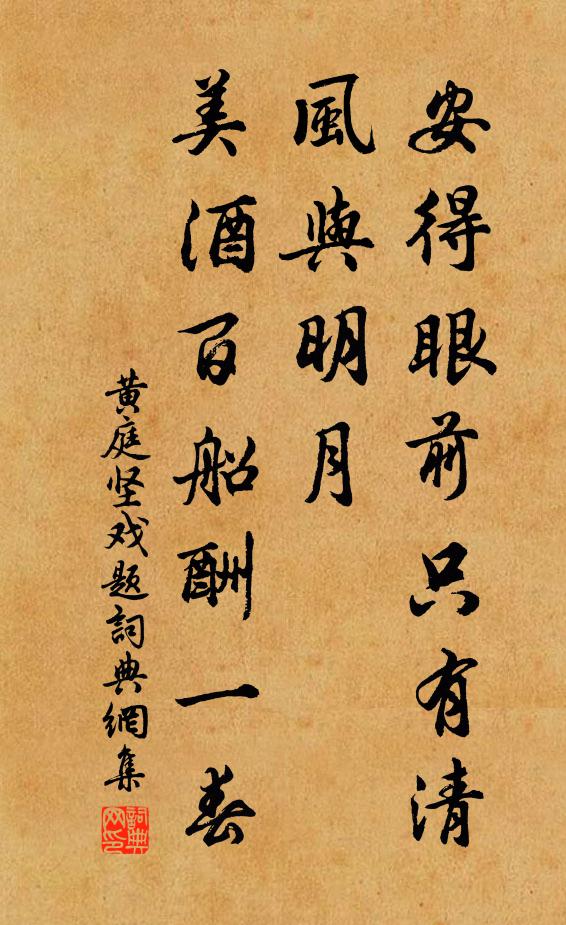 安得眼前只有清
風與明月
美酒百船酬一春
黄庭坚戏题詞典網集
詞典网印